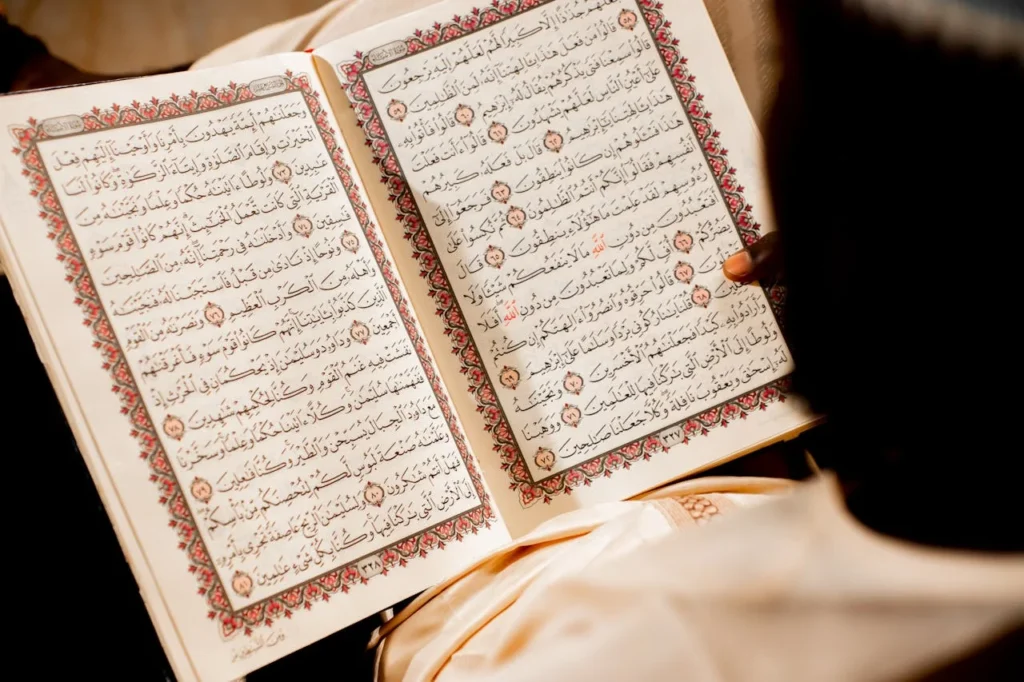 فَجَعَلَهُمْ جُذَاذًا إِلَّا كَبِيرًا لَّهُمْ لَعَلَّهُمْ إِلَيْهِ يَرْجِعُونَ
٥٨ قَالُوا۟ مَن فَعَلَ هَـٰذَا بِـَٔالِهَتِنَآ إِنَّهُۥ لَمِنَ ٱلظَّـٰلِمِينَ ٥٩
قَالُوا۟ سَمِعْنَا فَتًى يَذْكُرُهُمْ يُقَالُ لَهُۥٓ إِبْرَٰهِيمُ ٦٠ قَالُوا۟ فَأْتُوا۟ بِهِۦ
عَلَىٰٓ أَعْيُنِ ٱلنَّاسِ لَعَلَّهُمْ يَشْهَدُونَ ٦١ قَالُوٓا۟ ءَأَنتَ فَعَلْتَ
هَـٰذَا بِـَٔالِهَتِنَا يَـٰٓإِبْرَٰهِيمُ ٦٢ قَالَ بَلْ فَعَلَهُۥ كَبِيرُهُمْ
هَـٰذَا فَسْـَٔلُوهُمْ إِن كَانُوا۟ يَنطِقُونَ ٦٣ فَرَجَعُوٓا۟ إِلَىٰٓ
أَنفُسِهِمْ فَقَالُوٓا۟ إِنَّكُمْ أَنتُمُ ٱلظَّـٰلِمُونَ ٦٤ ثُمَّ نُكِسُوا۟ عَلَىٰ
رُءُوسِهِمْ لَقَدْ عَلِمْتَ مَا هَـٰٓؤُلَآءِ يَنطِقُونَ ٦٥ قَالَ
أَفَتَعْبُدُونَ مِن دُونِ ٱللَّهِ مَا لَا يَنفَعُكُمْ شَيْـًٔا وَلَا
يَضُرُّكُمْ ٦٦ أُفٍّ لَّكُمْ وَلِمَا تَعْبُدُونَ مِن دُونِ ٱللَّهِ أَفَلَا
٦٧ قَالُوا۟ حَرِّقُوهُ وَٱنصُرُوٓا۟ ءَالِهَتَكُمْ إِن كُنتُمْ
٦٨ قُلْنَا يَـٰنَارُ كُونِى بَرْدًا وَسَلَـٰمًا عَلَىٰٓ إِبْرَٰهِيمَ ٦٩
وَأَرَادُوا۟ بِهِۦ كَيْدًا فَجَعَلْنَـٰهُمُ ٱلْأَخْسَرِينَ ٧٠ وَنَجَّيْنَـٰهُ
وَلُوطًا إِلَى ٱلْأَرْضِ ٱلَّتِى بَـٰرَكْنَا فِيهَا لِلْعَـٰلَمِينَ ٧١ وَوَهَبْنَا
لَهُۥٓ إِسْحَـٰقَ وَيَعْقُوبَ نَافِلَةً وَكُلًّا جَعَلْنَا صَـٰلِحِينَ ٧٢
٣٢٧
وَجَعَلْنَـٰهُمْ أَئِمَّةً يَهْدُونَ بِأَمْرِنَا وَأَوْحَيْنَآ إِلَيْهِمْ فِعْلَ
ٱلْخَيْرَٰتِ وَإِقَامَ ٱلصَّلَوٰةِ وَإِيتَآءَ ٱلزَّكَوٰةِ وَكَانُوا۟ لَنَا
عَـٰبِدِينَ ٧٣ وَلُوطًا ءَاتَيْنَـٰهُ حُكْمًا وَعِلْمًا وَنَجَّيْنَـٰهُ مِنَ
ٱلْقَرْيَةِ ٱلَّتِى كَانَت تَّعْمَلُ ٱلْخَبَـٰٓئِثَ إِنَّهُمْ كَانُوا۟ قَوْمَ سَوْءٍ
فَـٰسِقِينَ ٧٤ وَأَدْخَلْنَـٰهُ فِى رَحْمَتِنَآ إِنَّهُۥ مِنَ ٱلصَّـٰلِحِينَ
٧٥ وَنُوحًا إِذْ نَادَىٰ مِن قَبْلُ فَٱسْتَجَبْنَا لَهُۥ فَنَجَّيْنَـٰهُ
وَأَهْلَهُۥ مِنَ ٱلْكَرْبِ ٱلْعَظِيمِ ٧٦ وَنَصَرْنَـٰهُ مِنَ ٱلْقَوْمِ
ٱلَّذِينَ كَذَّبُوا۟ بِـَٔايَـٰتِنَآ إِنَّهُمْ كَانُوا۟ قَوْمَ سَوْءٍ فَأَغْرَقْنَـٰهُمْ
أَجْمَعِينَ ٧٧ وَدَاوُۥدَ وَسُلَيْمَـٰنَ إِذْ يَحْكُمَانِ فِى ٱلْحَرْثِ إِذْ
نَفَشَتْ فِيهِ غَنَمُ ٱلْقَوْمِ وَكُنَّا لِحُكْمِهِمْ شَـٰهِدِينَ ٧٨
فَفَهَّمْنَـٰهَا سُلَيْمَـٰنَ وَكُلًّا ءَاتَيْنَا حُكْمًا وَعِلْمًا وَسَخَّرْنَا
مَعَ دَاوُۥدَ ٱلْجِبَالَ يُسَبِّحْنَ وَٱلطَّيْرَ وَكُنَّا فَـٰعِلِينَ ٧٩
وَعَلَّمْنَـٰهُ صَنْعَةَ لَبُوسٍ لَّكُمْ لِتُحْصِنَكُم مِّنۢ بَأْسِكُمْ
فَهَلْ أَنتُمْ شَـٰكِرُونَ ٨٠ وَلِسُلَيْمَـٰنَ ٱلرِّيحَ عَاصِفَةً تَجْرِى بِأَمْرِهِۦٓ
إِلَى ٱلْأَرْضِ ٱلَّتِى بَـٰرَكْنَا فِيهَا وَكُنَّا بِكُلِّ شَىْءٍ عَـٰلِمِينَ ٨١
٣٢٨